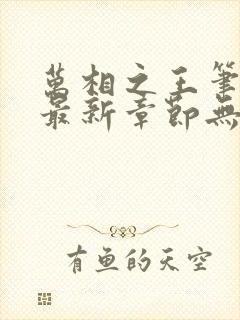 萬相之王筆
最新章節無
有鱼的天空